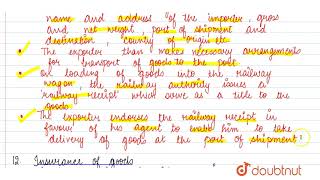 name and address of the importer, gross
and net weight, port of shipment and
destination, country of origin etc.
The exporter then makes necessary arrangements
for transport of goods to the port.
On loading of goods into the railway
wagon, the railway authority issues a
railway receipt which serve as a title to the
goods.
The exporter endorses the railway receipt in
favour of his agent to enable him to take
delivery of goods at the port of shipment.
12 Insurance of goods
doubtnut